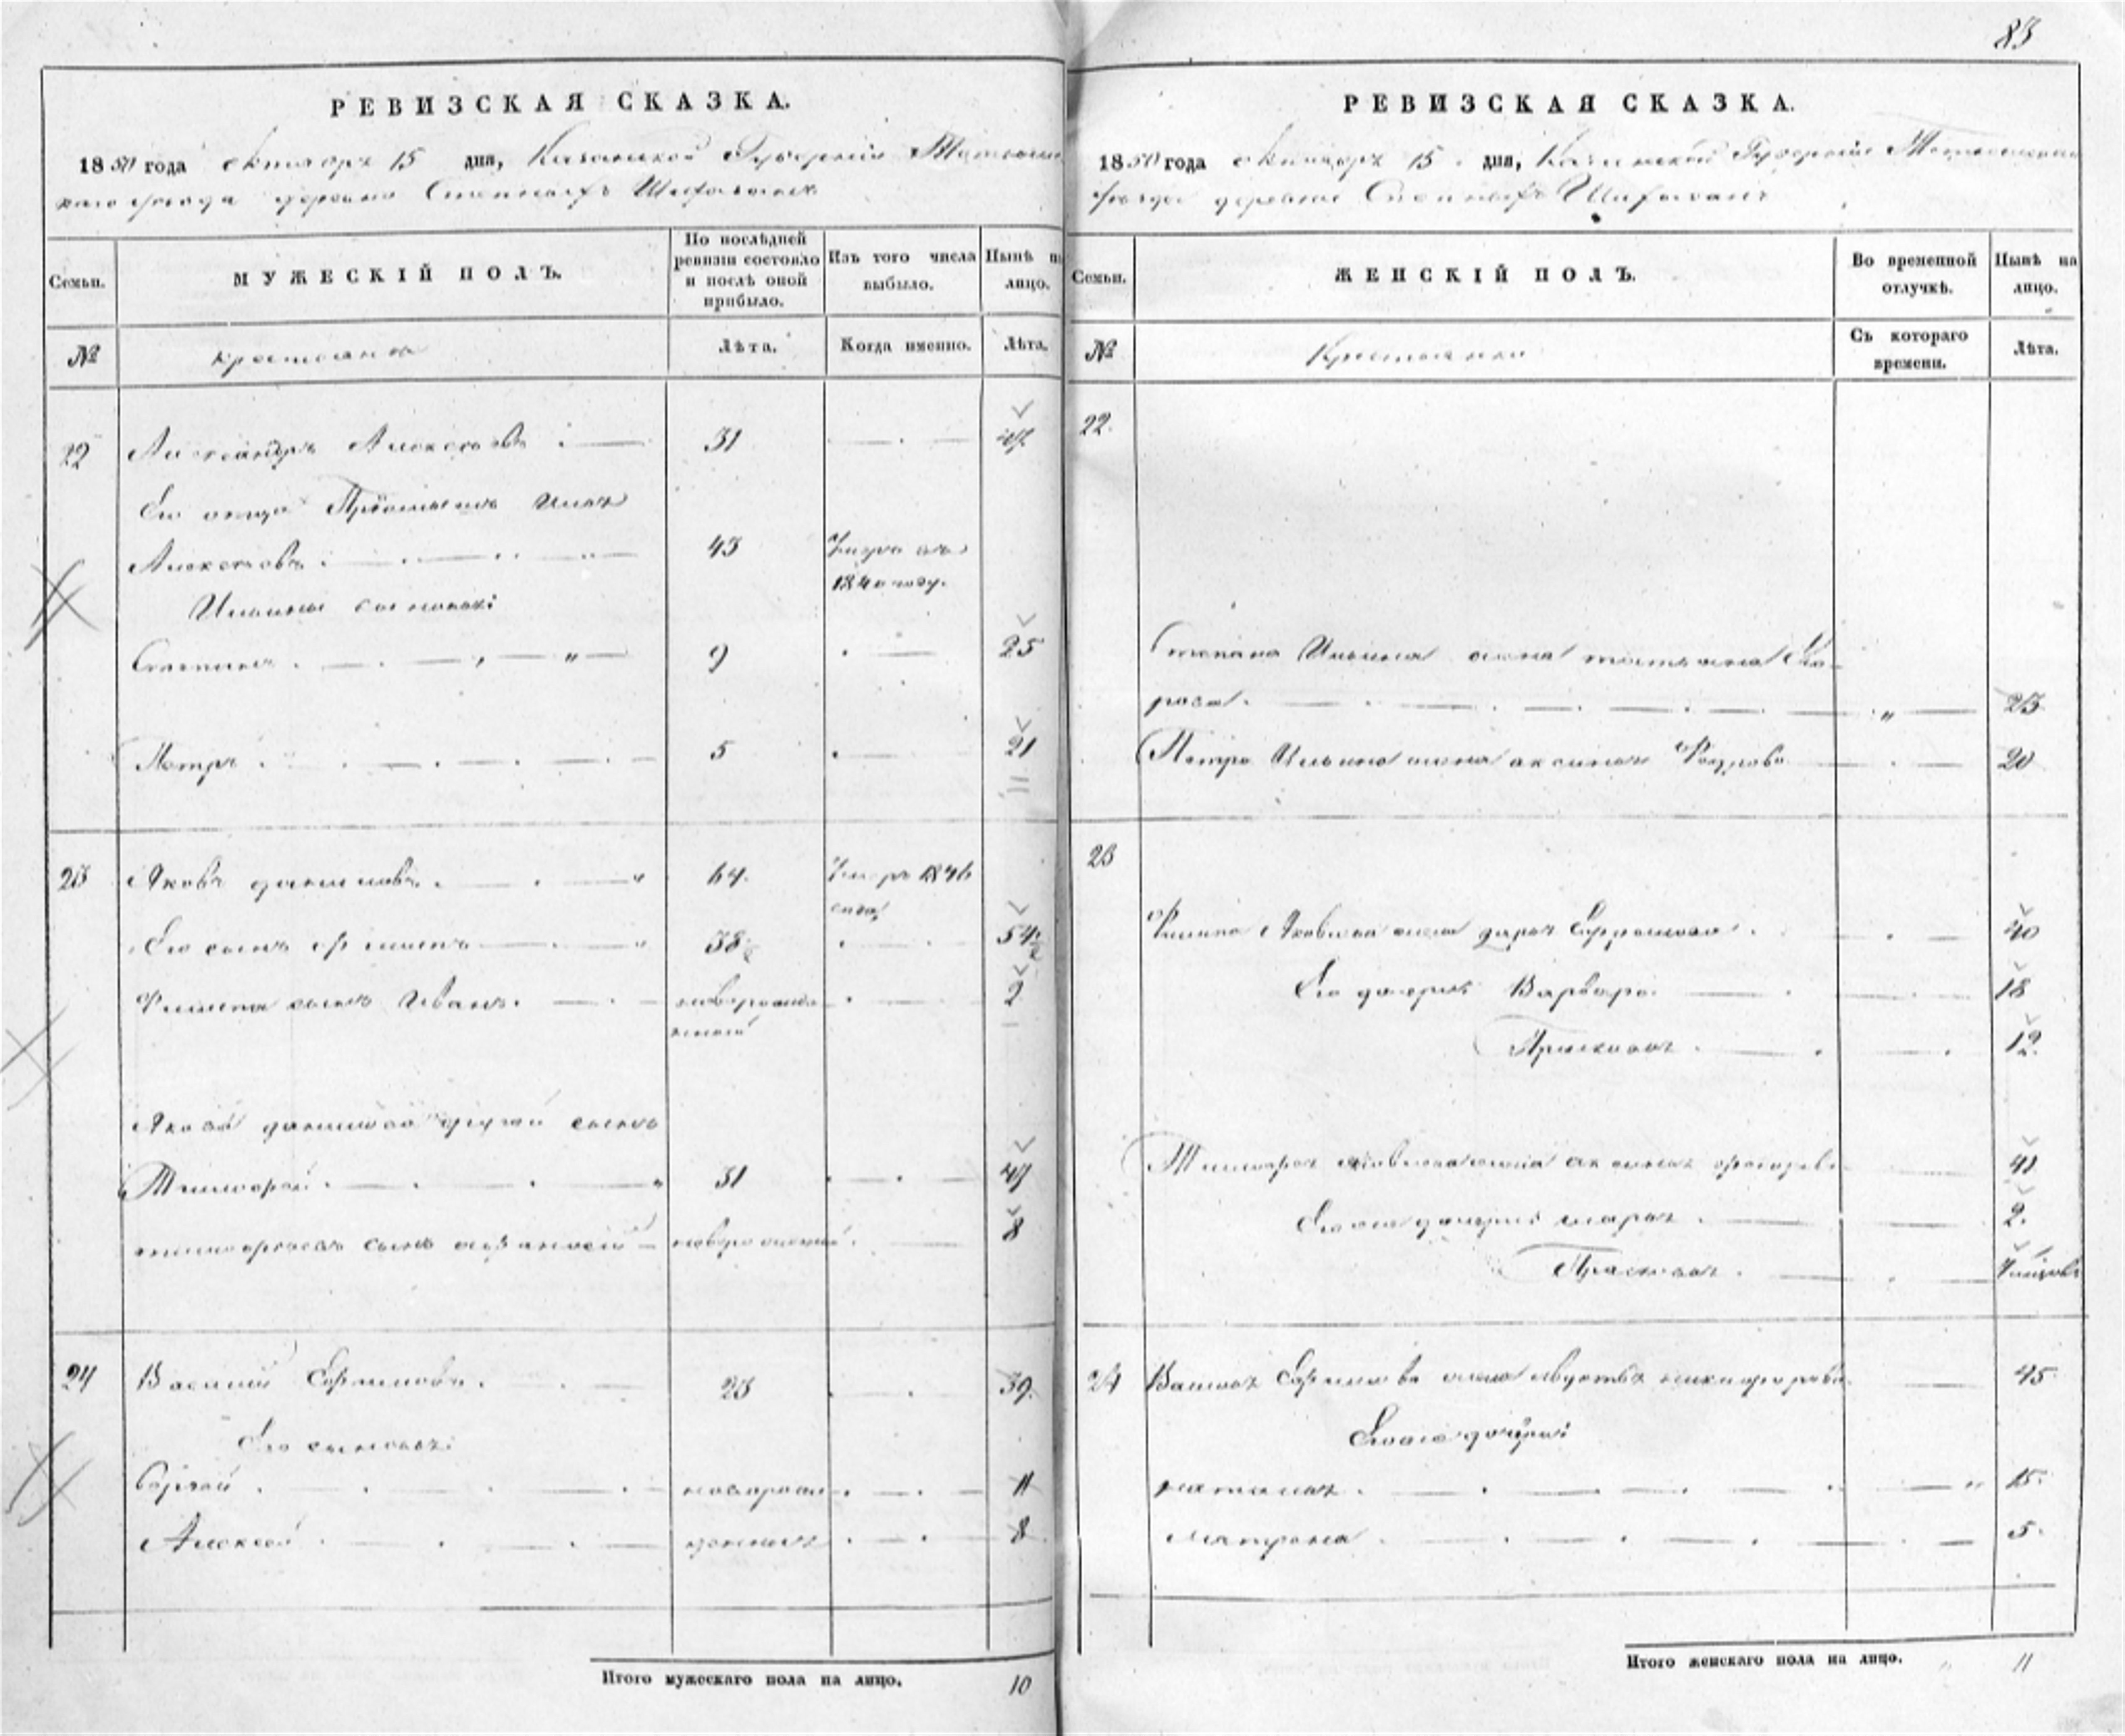 83
РЕВИЗСКАЯ СКАЗКА.
1850 года октября 15 дня, Казанской Губернии
каго уезда деревни Степныхъ Шифасанъ
Семьи. МУЖЕСКІЙ ПОЛЪ. По послѣдней ревизіи состояло и послѣ оной прибыло. Изъ того числа выбыло. Нынѣ на лицо.
№ крестьяне Лѣта. Когда именно. Лѣта.
22 Александръ Алексеевъ 31 47
Его отца
Алексеевъ 43 1840 году.
Ильины сыновья:
Степанъ 9 25
Петръ 5 21
23 Яковъ Даниловъ 64 Умеръ 1846
года
Его сынъ Филипъ 38 54
Филипа сынъ Иванъ новорожд 2
енный
Якова Данилова другой сынъ
Тимофей 31 47
Тимофеевъ сынъ новорожденный 8
24 Василий Ефимовъ 23 39.
Его сыновья:
Сергей новорож 11
Алексей денные 8
Итого мужескаго пола на лицо. 10
РЕВИЗСКАЯ СКАЗКА.
1850 года октября 15 дня, Казанской Губернии
уезда деревни Степныхъ Шифасанъ
Семьи. ЖЕНСКІЙ ПОЛЪ. Во временной отлучкѣ. Нынѣ на лицо.
№ Крестьянки Съ котораго времени. Лѣта.
22.
Степана Ильина жена Татьяна
23
Петра Ильина жена Аксинья Федорова 20
23
Филипа Яковлева жена Дарья 40
Его дочери: Варвара 18
Прасковья 12.
Тимофея Яковлева жена Аксинья 41
Его же дочери: Марья 2.
Прасковья
24 Василья Ефимова жена Никифорова 45
Его же дочери:
Наталья 15.
Матрена 5.
Итого женскаго пола на лицо. 11